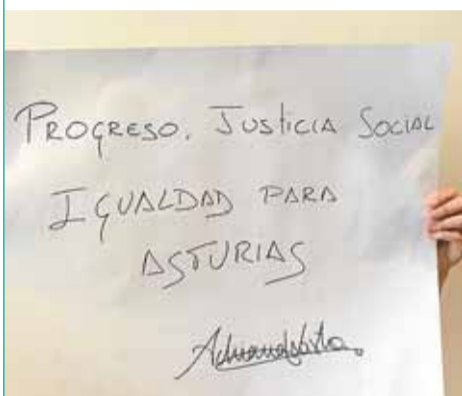 PROGRESO. JUSTICIA SOCIAL
IGUALDAD PARA
ASTURIAS